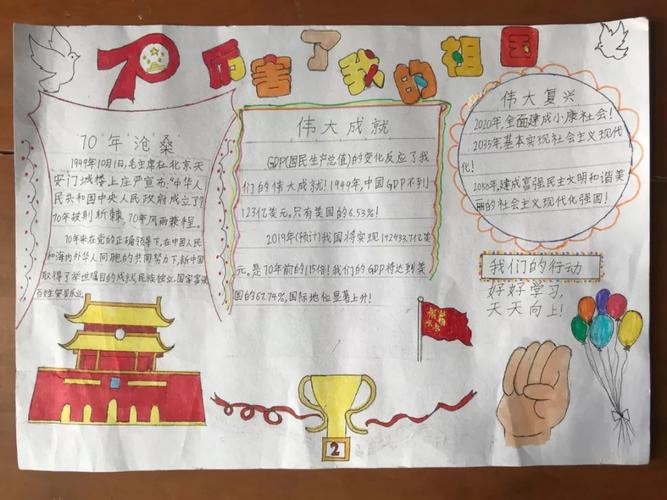 70 厉害了我的祖国
70年沧桑
1949年10月1日,毛主席在北京天
安门城楼上庄严宣布:“中华人
民共和国中央人民政府成立了”!
70年披荆斩棘,70年风雨兼程。
70年来在党的正确领导下,在中国人民
和海内外华人同胞的共同努力下,新中国
取得了举世瞩目的成就,民族独立,国家富强
百姓安居乐业。
伟大成就
GDP(国民生产总值)的变化反应了我
们的伟大成就!1949年,中国GDP不到
123亿美元,只有美国的6.53%!
2019年(预计)我国将实现142433.7亿美
元。是70年前的1158倍!我们的GDP将达到美
国的67.74%,国际地位显著上升!
伟大复兴
2020年,全面建成小康社会!
2035年基本实现社会主义现代
化!
2050年,建成富强民主文明和谐美
丽的社会主义现代化强国!
我们的行动
好好学习,
天天向上!
2